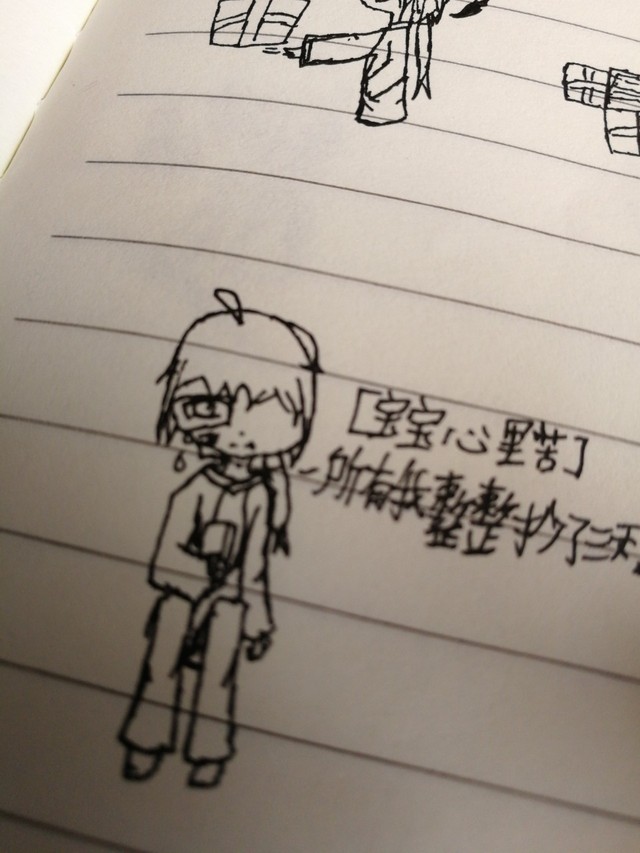 [宝宝心里苦]
-所有我整整抄了三天